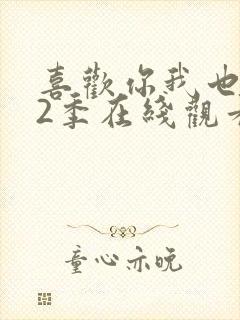 喜歡你我也
2季在綫觀
童心亦晚